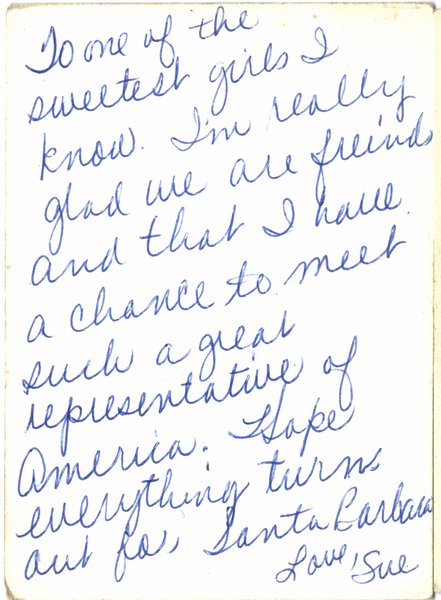 To one of the
sweetest girls I
know. I'm really
glad we are freinds
and that I have
a chance to meet
such a great
representative of
America. Hope
everything turns
out fo, Santa Barbara
Love, Sue